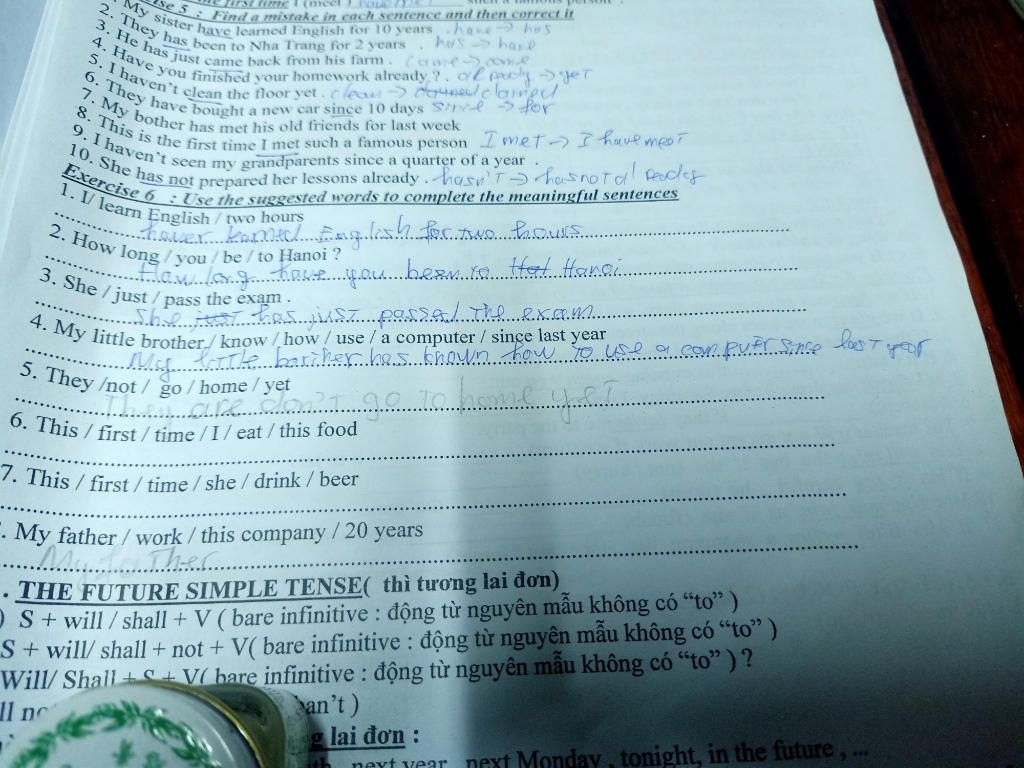 first time I (meet
such a famous person
5 : Find a mistake in each sentence and then correct it
My sister have learned English for 10 years . have -> has
2. They has been to Nha Trang for 2 years . has -> have
3. He has just came back from his farm . came -> come
4. Have you finished your homework already ? . -> yet
5. I haven't clean the floor yet . clean ->
6. They have bought a new car since 10 days since -> for
7. My bother has met his old friends for last week
8. This is the first time I met such a famous person I met -> I have
9. I haven't seen my grandparents since a quarter of a year .
10. She has not prepared her lessons already . hasn't ->
Exercise 6 : Use the suggested words to complete the meaningful sentences
1. I/ learn English / two hours
English for two hours
2. How long / you / be / to Hanoi ?
How long have you been to Hanoi
3. She / just / pass the exam .
She just has just passed the exam
4. My little brother / know / how / use / a computer / since last year
My little has known how to use a computer since last year
5. They /not / go / home / yet
They are don't go to home yet
6. This / first / time / I / eat / this food
7. This / first / time / she / drink / beer
. My father / work / this company / 20 years
My father
. THE FUTURE SIMPLE TENSE( thì tương lai đơn)
) S + will / shall + V ( bare infinitive : động từ nguyên mẫu không có “to” )
S + will/ shall + not + V( bare infinitive : động từ nguyên mẫu không có “to” )
Will/ Shall + S + V( bare infinitive : động từ nguyên mẫu không có “to” ) ?
an't )
lai đơn :
next year, next Monday , tonight, in the future , ...